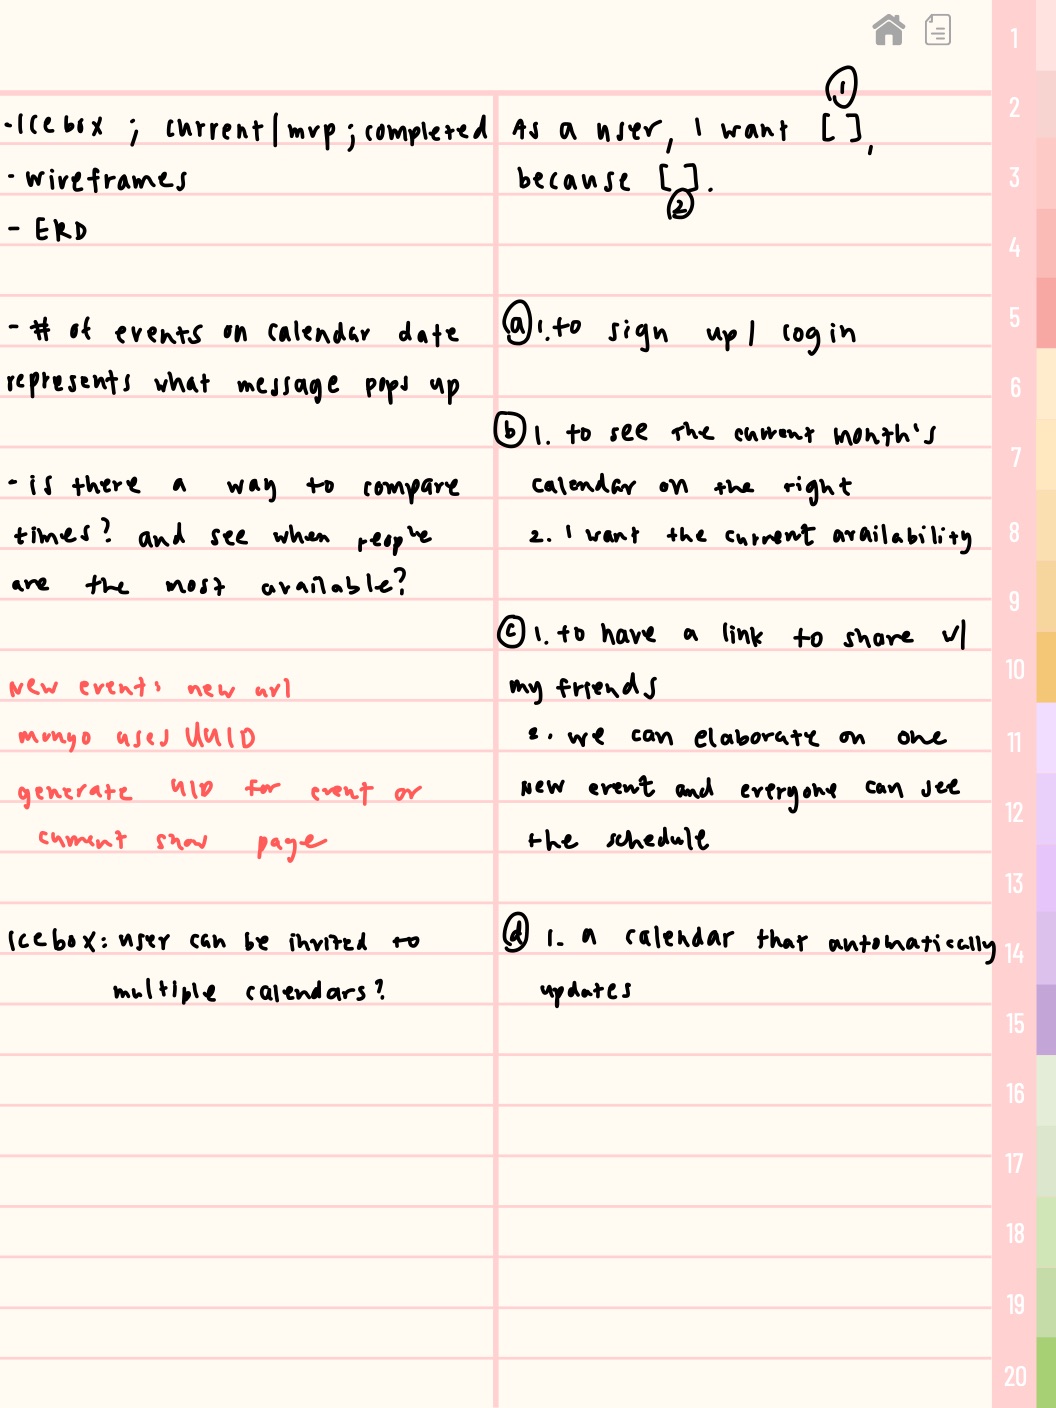 -Icebox ; current/mvp ; completed
- wireframes
- ERD
- # of events on calendar date
represents what message pops up
- is there a way to compare
times? and see when people
are the most available?
New event: new url
mongo uses UUID
generate UID for event or
current show page
Icebox: user can be invited to
multiple calendars?
①
As a user, I want [ ],
because [ ].
②
ⓐ 1. to sign up / login
ⓑ 1. to see the current month's
calendar on the right
2. I want the current availability
ⓒ 1. to have a link to share w/
my friends
2. we can elaborate on one
new event and everyone can see
the schedule
ⓓ 1. a calendar that automatically
updates
1
2
3
4
5
6
7
8
9
10
11
12
13
14
15
16
17
18
19
20